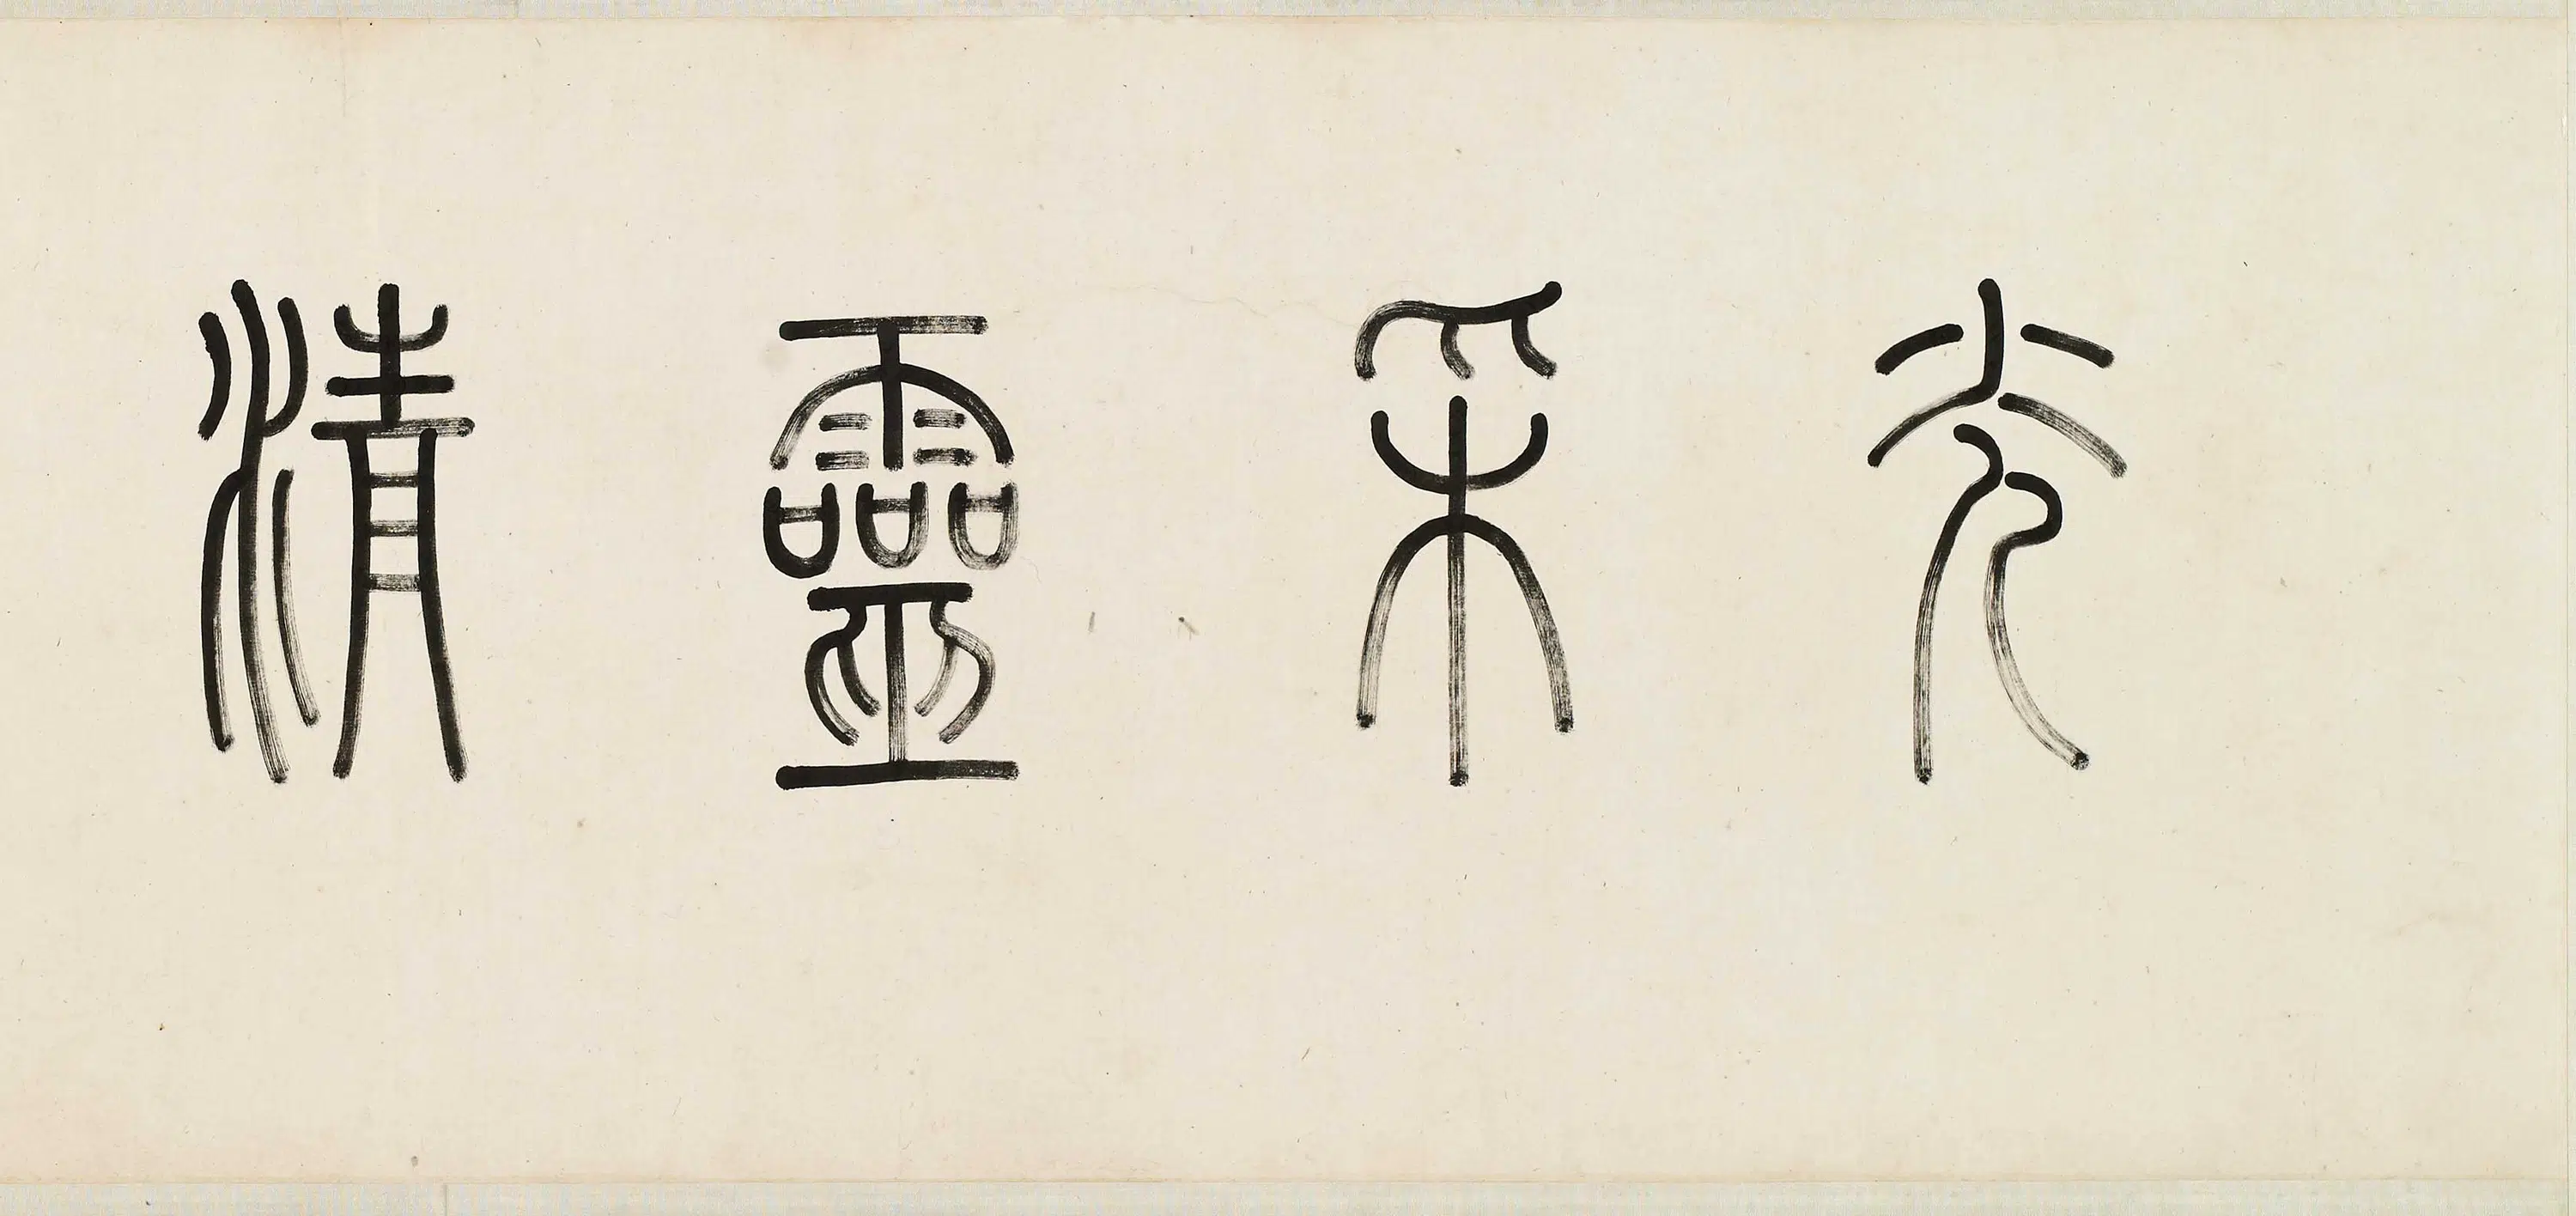 光采靈清